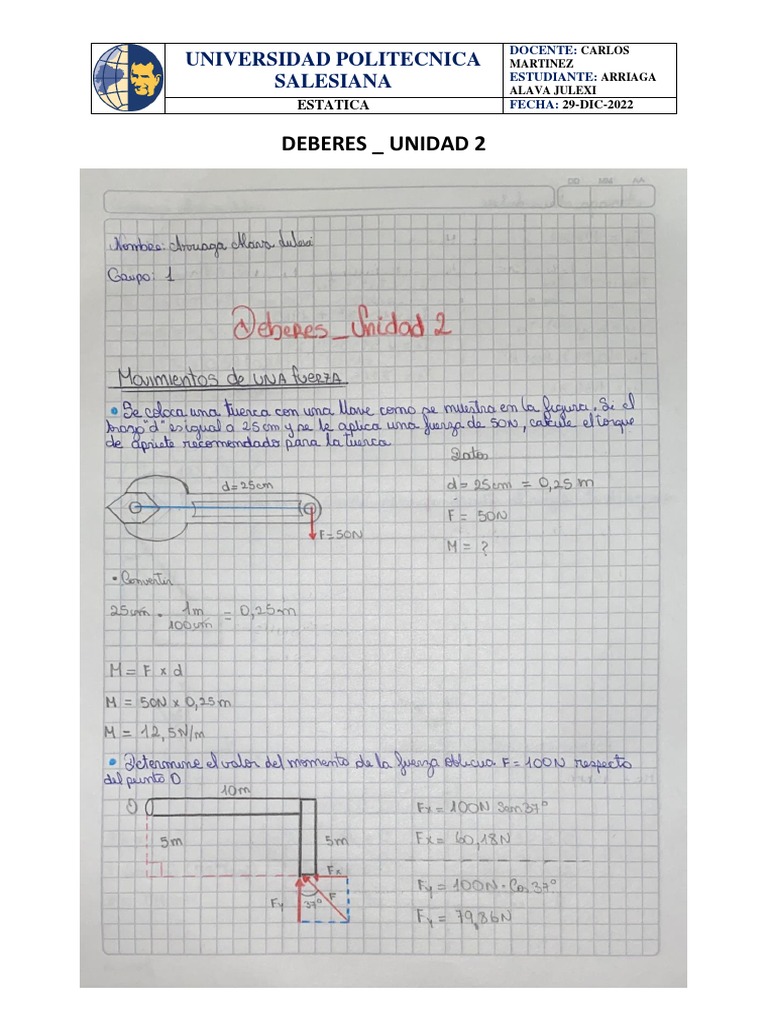 UNIVERSIDAD POLITECNICA
SALESIANA
ESTATICA
DOCENTE: CARLOS
MARTINEZ
ESTUDIANTE: ARRIAGA
ALAVA JULEXI
FECHA: 29-DIC-2022
DEBERES _ UNIDAD 2
DD MM AA
Nombre: Arriaga Alava Julexi
Grupo: 1
Deberes_Unidad 2
Movimientos de una fuerza
• Se coloca una tuerca con una llave como se muestra en la figura. Si el
brazo "d" es igual a 25cm y se le aplica una fuerza de 50N, calcule el torque
de apriete recomendado para la tuerca
Datos
d=25cm
d= 25cm = 0,25 m
F = 50N
F=50N
M = ?
• Convertir
25cm . 1m = 0,25m
100cm
M = F x d
M = 50N x 0,25m
M = 12,5N/m
• Determine el valor del momento de la fuerza oblicua F=100N respecto
del punto O
10m
O
5m
5m
Fx
F
Fy
37°
Fx = 100N Sen37°
Fx = 60,18N
Fy = 100N . Cos37°
Fy = 79,86N